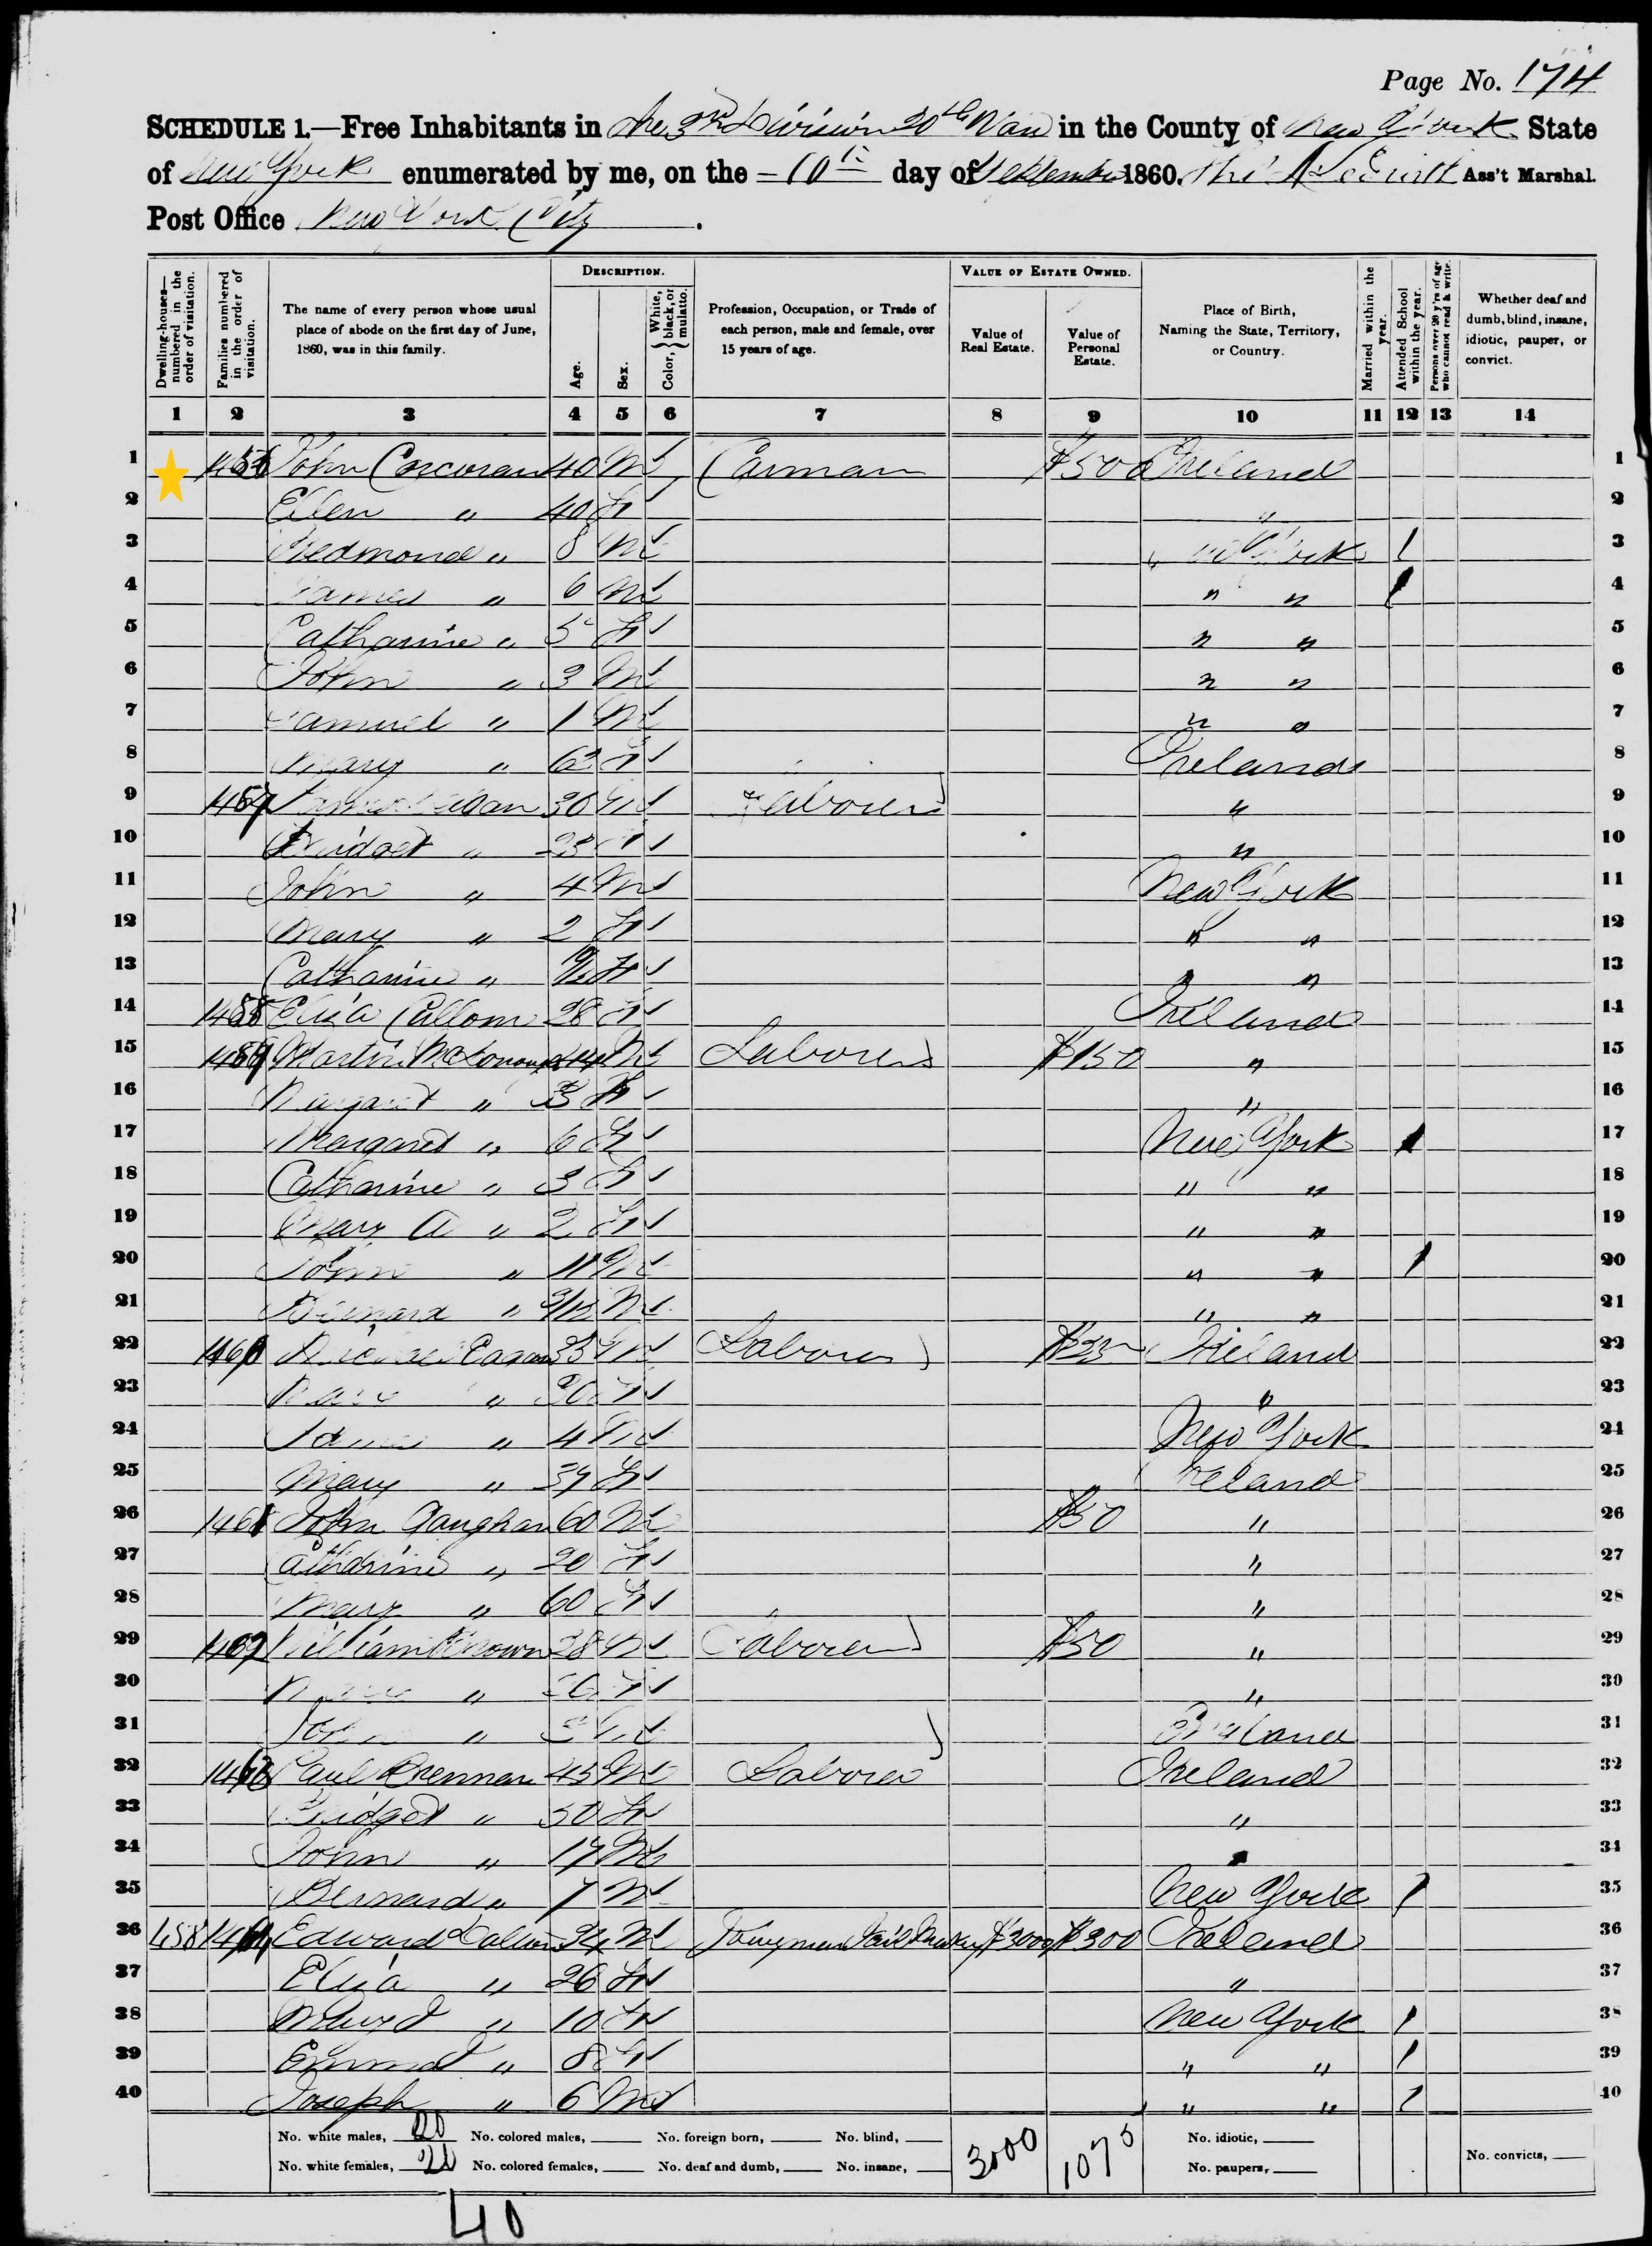 Page No. 174
SCHEDULE 1.—Free Inhabitants in the 3rd Division 20th Ward in the County of New York State
of New York enumerated by me, on the 10th day of September 1860. Ass't Marshal.
Post Office New York City.
Dwelling-houses—numbered in the order of visitation.
Families numbered in the order of visitation.
The name of every person whose usual place of abode on the first day of June, 1860, was in this family.
DESCRIPTION.
Age.
Sex.
Color, { White, black, or mulatto.
Profession, Occupation, or Trade of each person, male and female, over 15 years of age.
VALUE OF ESTATE OWNED.
Value of Real Estate.
Value of Personal Estate.
Place of Birth, Naming the State, Territory, or Country.
Married within the year.
Attended School within the year.
Persons over 20 y'rs of age who cannot read & write.
Whether deaf and dumb, blind, insane, idiotic, pauper, or convict.
1 2 3 4 5 6 7 8 9 10 11 12 13 14
1 John Corcoran 40 M Carman $500 Ireland 1
2 Ellen " 40 F " 2
3 Redmond " 8 M York / 3
4 James " 6 M " " / 4
5 Catharine " 5 F " " 5
6 John " 3 M " " 6
7 Samuel " 1 M " " 7
8 Mary " 62 F Ireland 8
9 1457 30 M Laborer " 9
10 Bridget " F " 10
11 John " 4 M New York 11
12 Mary " 2 F " " 12
13 Catharine " F " " 13
14 1458 Eliza Callom 28 F Ireland 14
15 1459 Martin McDonough 44 M Laborer $150 " 15
16 Margaret " F " 16
17 Margaret " 6 F New York / 17
18 Catharine " 3 F " " 18
19 Mary A " 2 F " " 19
20 John " 11 M " " / 20
21 Bernard " M " " 21
22 1460 Michael Eagan 35 M Laborer Ireland 22
23 " 30 F " 23
24 James " 4 M New York 24
25 Mary " 37 F Ireland 25
26 1461 John Gaughan 60 M $50 " 26
27 Catharine " 20 F " 27
28 Mary " 60 F " 28
29 William 28 M Laborer $50 " 29
30 " F " 30
31 John " M England 31
32 1463 Paul Brennan 45 M Laborer Ireland 32
33 Bridget " 50 F " 33
34 John " 17 M " 34
35 Bernard " 7 M New York / 35
36 458 1464 Edward Dalton 34 M Jouryman Sail Maker $3000 $300 Ireland 36
37 Eliza " 26 F " 37
38 " 10 F New York / 38
39 Emma " 8 F " " / 39
40 Joseph " 6 M " " / 40
No. white males, 20 No. colored males, No. foreign born, No. blind, 3000 1075 No. idiotic,
No. white females, No. colored females, No. deaf and dumb, No. insane, No. paupers, No. convicts,
40